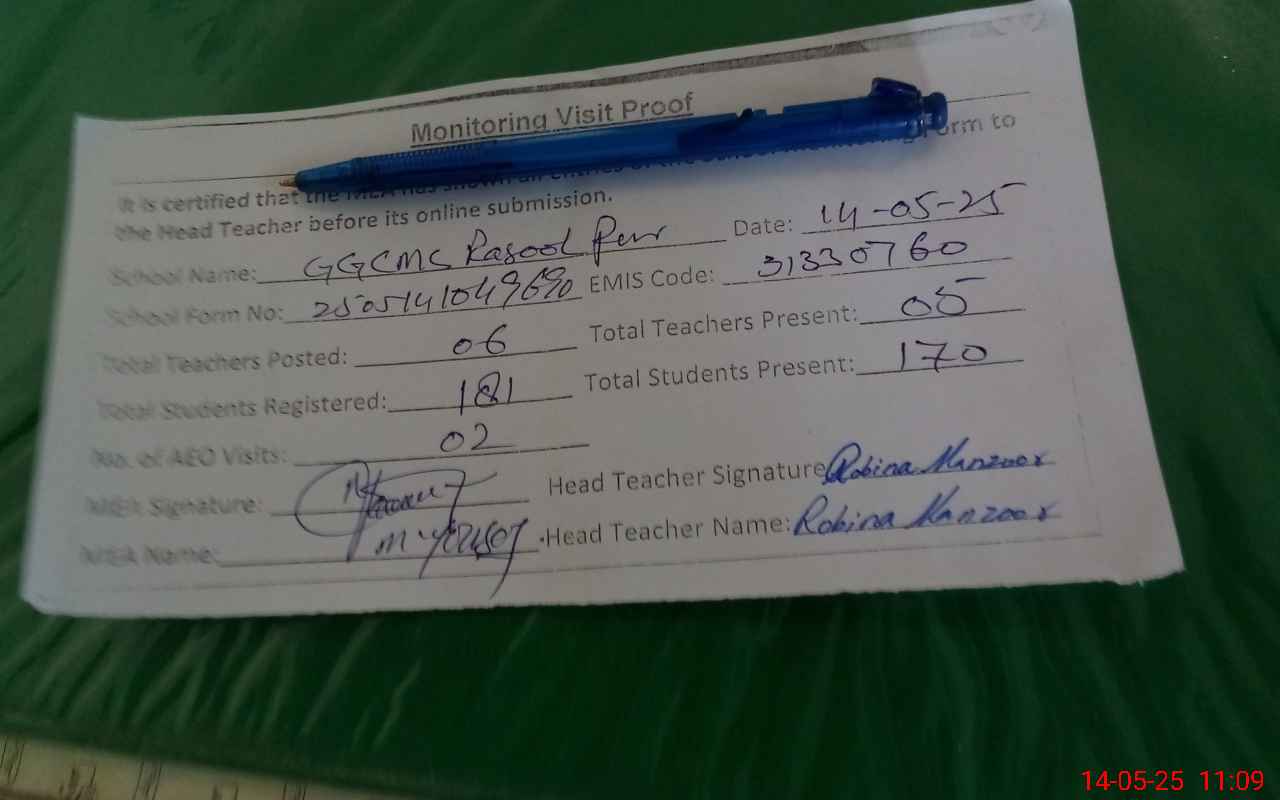 Monitoring Visit Proof
It is certified that the MEA has shown all entries of the form to
the Head Teacher before its online submission.
School Name: GGCMS Rasool Pur Date: 14-05-25
School Form No: EMIS Code: 31330760
Total Teachers Posted: 06 Total Teachers Present: 05
Total Students Registered: 181 Total Students Present: 170
No. of AEO Visits: 02
MEA Signature: Head Teacher Signature Robina Manzoor
MEA Name: Head Teacher Name: Robina Manzoor
14-05-25 11:09